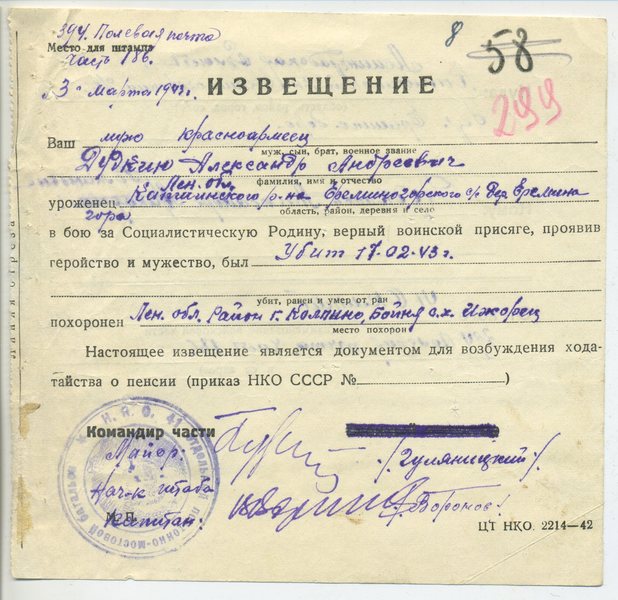 394. Полевая почта
Место для штампа
часть 186.
8
58
„3" марта 1943 г.
ИЗВЕЩЕНИЕ
299
Ваш муж красноармеец
муж, сын, брат, военное звание
Дудкин Александр Андреевич
фамилия, имя и отчество
Лен. обл.
уроженец Капшинского р-на Ереминогорского с/с дер. Еремина
гора
область, район, деревня и село
в бою за Социалистическую Родину, верный воинской присяге, проявив
геройство и мужество, был Убит 17-02-43 г.
убит, ранен и умер от ран
похоронен Лен. обл. Район г. Колпино, с.х. Ижорец
место похорон
Настоящее извещение является документом для возбуждения хода-
тайства о пенсии (приказ НКО СССР №)
Командир части
Майор:
/Гуляницкий/.
Нач-к штаба
Капитан:
/Воронов/
М.П.
Н.К.О. 41 отдельный понтонно-мостовой батальон
ЦТ НКО. 2214—42